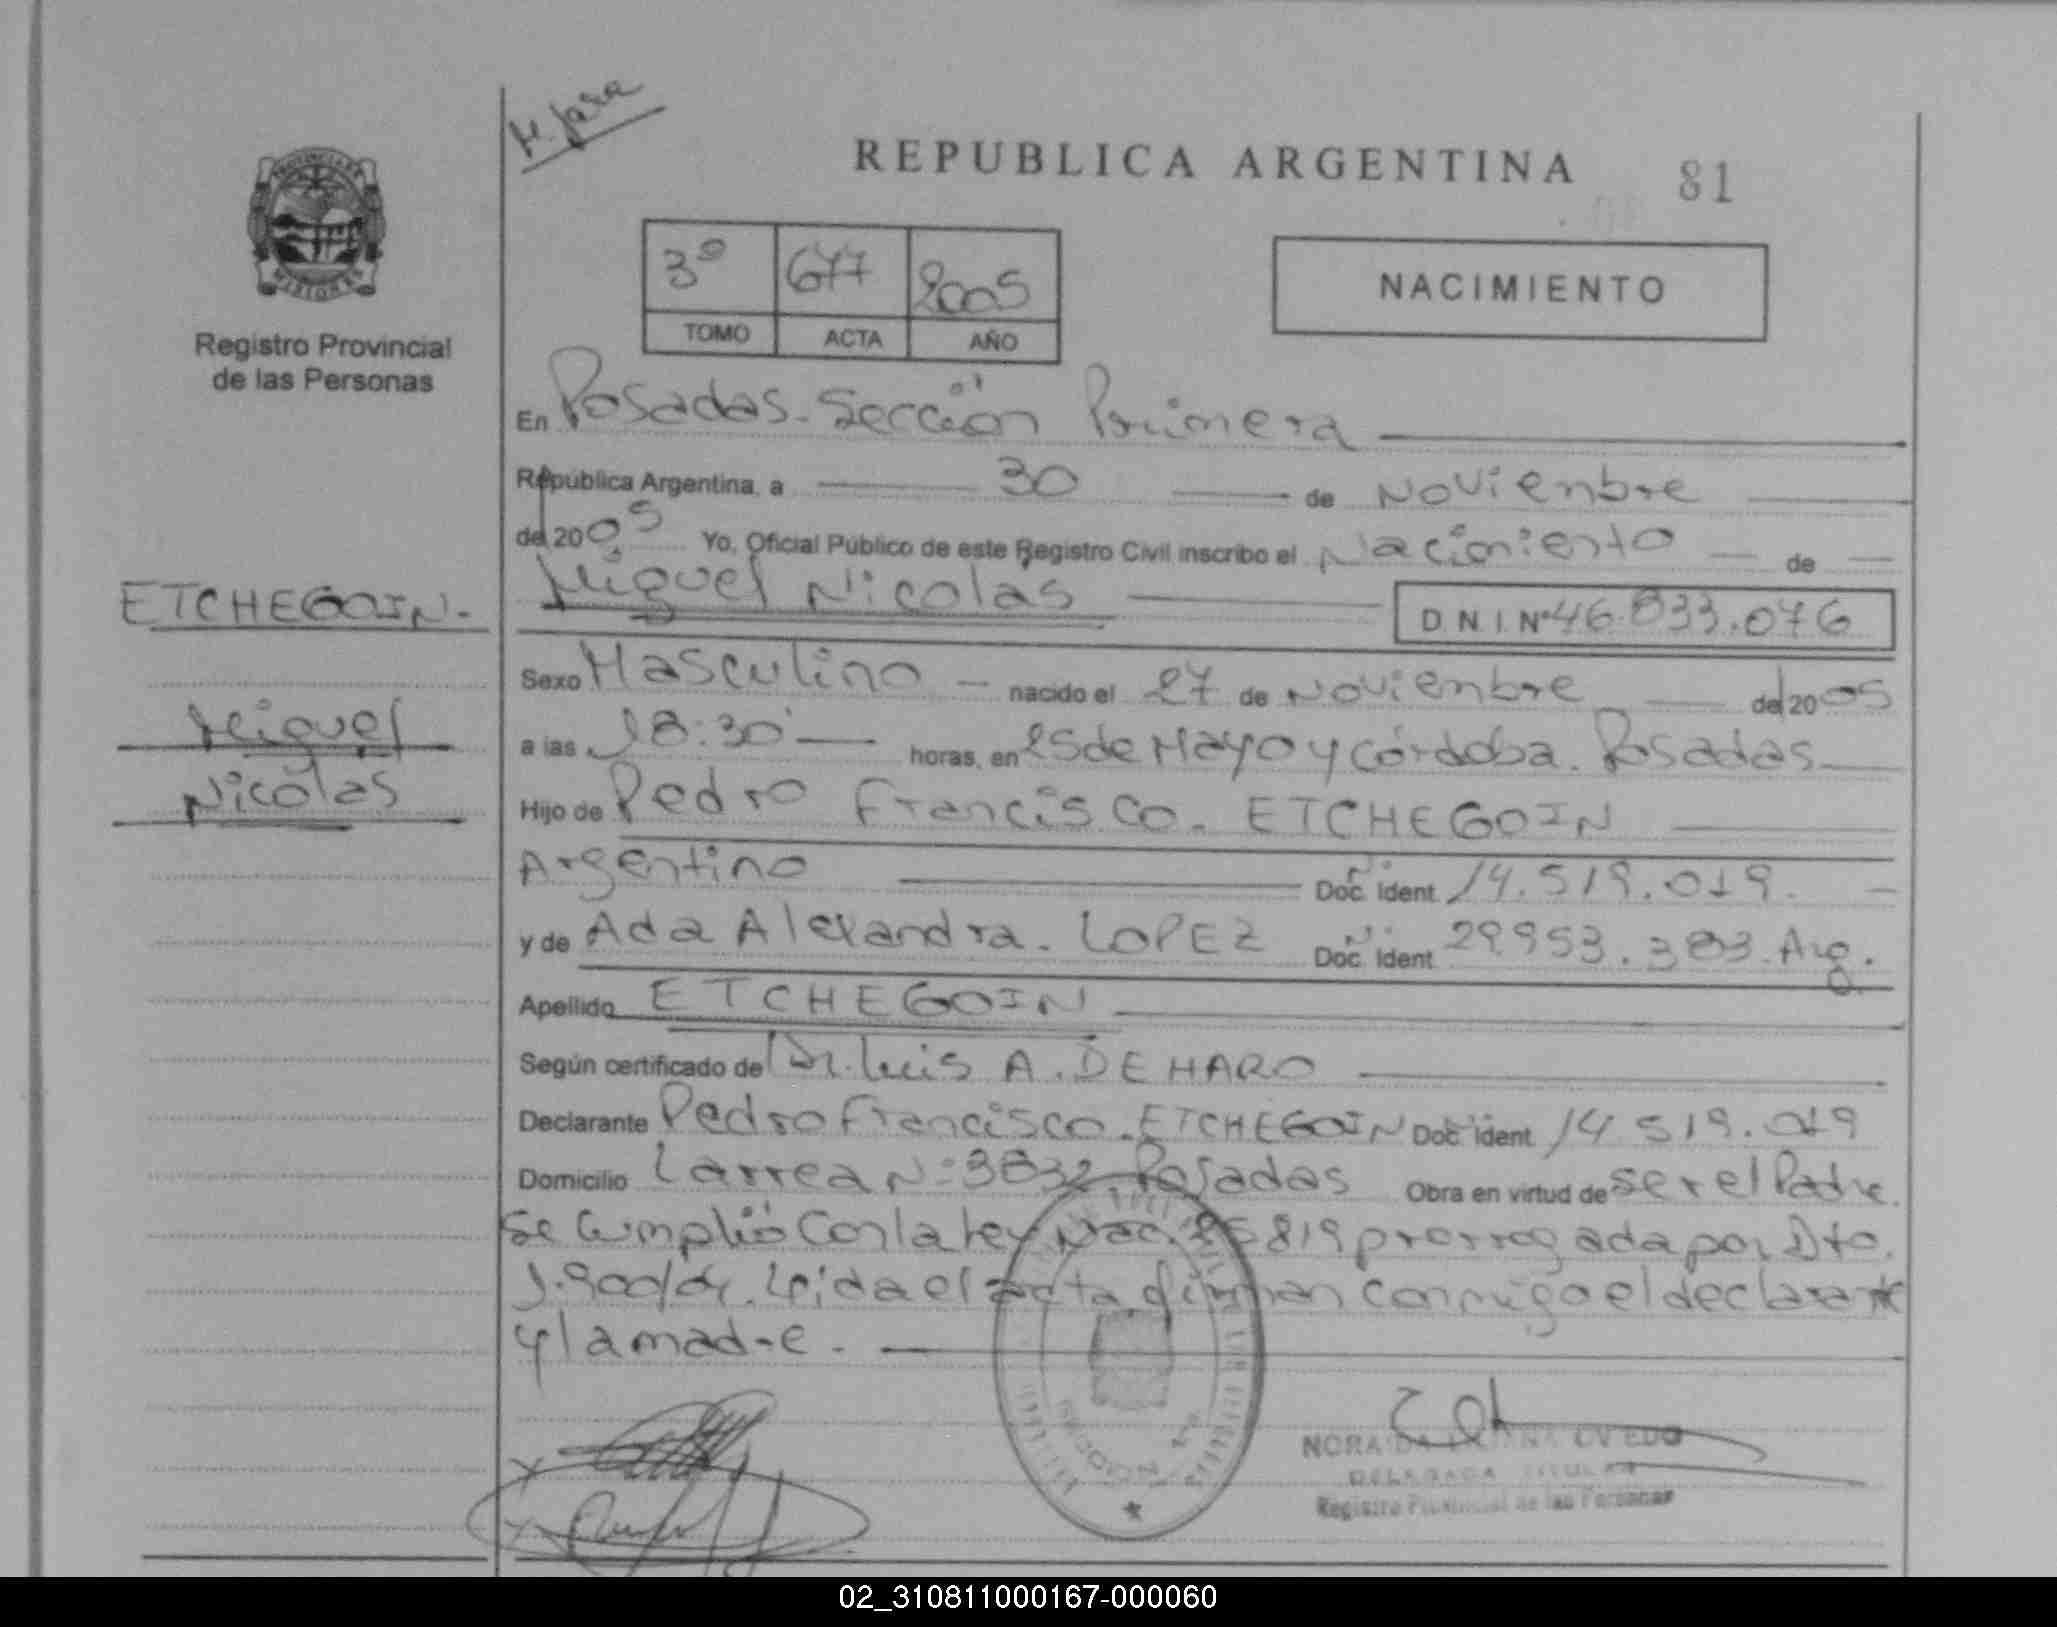 M. Jara
REPUBLICA ARGENTINA 81
PROVINCIA DE
MISIONES
Registro Provincial
de las Personas
3º 677 2005
TOMO ACTA AÑO
NACIMIENTO
En Posadas - Sección Primera
República Argentina, a 30 de Noviembre
del 2005 Yo, Oficial Público de este Registro Civil inscribo el Nacimiento de
Miguel Nicolas D.N.I. Nº 46.833.076
ETCHEGOIN.-
Miguel
Nicolás
Sexo Masculino - nacido el 27 de Noviembre del 2005
a las 18:30' horas, en 25 de Mayo y Córdoba. Posadas
Hijo de Pedro Francisco. ETCHEGOIN
Argentino Doc. Ident. Nº 14.519.019.
y de Ada Alexandra. LOPEZ Doc. Ident. Nº 29.953.383. Arg.
Apellido ETCHEGOIN
Según certificado de Dr. Luis A. DE HARO
Declarante Pedro Francisco. ETCHEGOIN Doc. Ident. 14.519.019
Domicilio Larrea Nº 3832 Posadas Obra en virtud de ser el Padre.
Se Cumplió Con la Ley Nac. 25819 prorrogada por Dto.
1.900/04. Leida el acta firman conmigo el declarante
y la madre.
NORA OVIEDO
DELEGADA TITULAR
Registro Provincial de las Personas
02_310811000167-000060